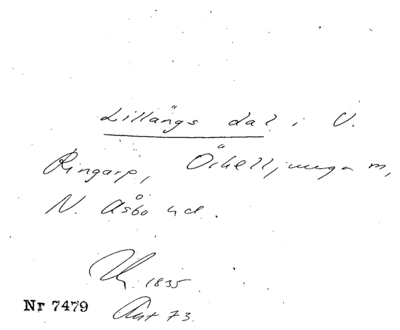 Lillängs dal i V.
Ringarp, Örkelljunga m,
N. Åsbo hd.
1835
Nr 7479
Ant 73.